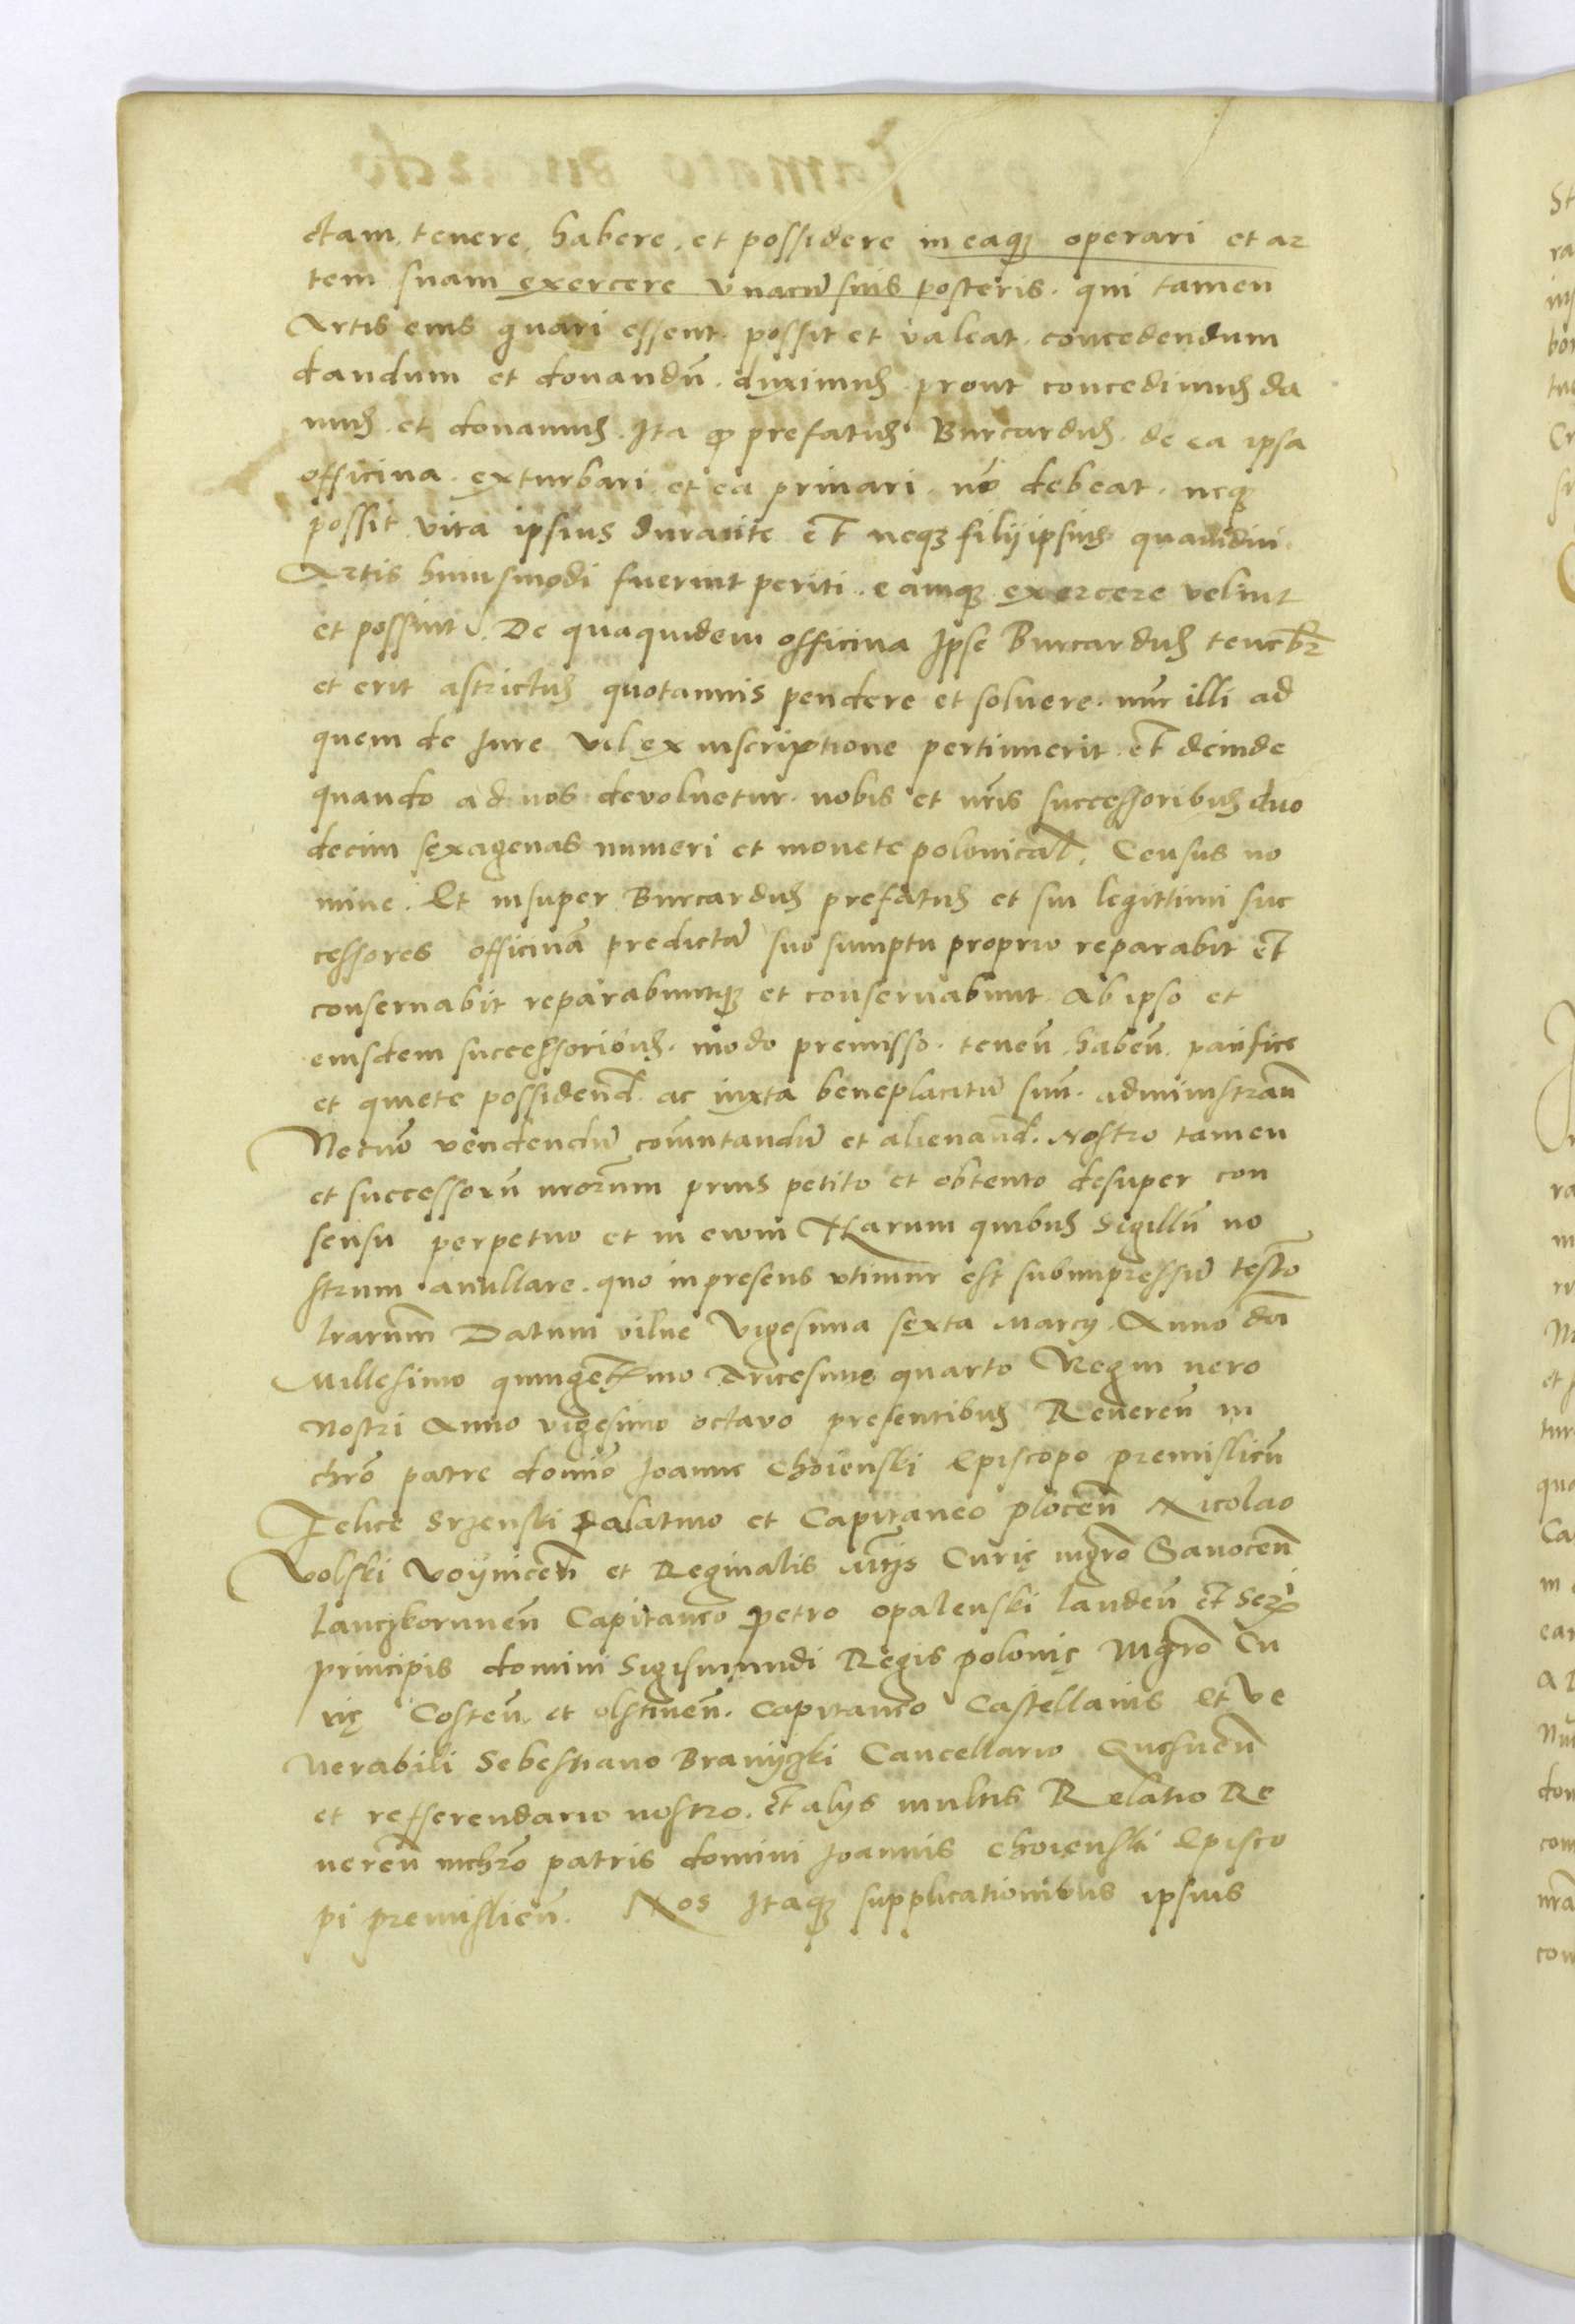 ctam, tenere, habere, et possidere in eaqꝫ operari et ar
tem suam exercere vnacū suis posteris. qui tamen
Artis eius gnari essent. possit et valeat. concedendum
dandum et donandū. duximuꝫ. prout concedimuꝫ da
muꝫ. et donamuꝫ. Ita ꝙ prefatuꝫ Burcarduꝫ. de ea ipsa
officina. exturbari. et ea priuari. nō debeat. neqꝫ
possit vita ipsius durante et neqꝫ filij ipsiuꝫ quamdiu
Artis huiusmodi fuerint periti. eamqꝫ exercere velint
et possint. De quaquidem officina Ipse Burcarduꝫ tenebr̄
et erit astrictuꝫ quotannis pendere et soluere. nūc illi ad
quem de Jure vel ex inscriptione pertinuerit. et deinde
quando ad nos deuoluetur. nobis et nr̄is successoribuꝫ duo
decim sexagenas numeri et monete polonical. Census no
mine. Et insuper Burcarduꝫ prefatuꝫ et sui legittimi suc
cessores officinā predictā suo sumptu proprio reparabit et
conseruabit reparabuntqꝫ et conseruabunt Ab ipso et
eiusdem successoribuꝫ. modo premisso. tenen̄. haben̄. pacifice
et quiete possidend̄. ac iuxta beneplacitū suū. administran̄
Necnō vendendū cōmutandū et alienand̄. Nostro tamen
et successorū nr̄orum prius petito et obtento desuper con
sensu perpetuo et in euum Harum quibuꝫ Sigillū no
strum anullare. quo in presens vtimur est subimpressū testīo
lr̄arum Datum vilne Vigesima sexta Marcij Anno dn̄i
Millesimo quingētesimo Tricesimo quarto Regni uero
Nostri Anno vigesimo octauo presentibuꝫ Reueren̄ in
chr̄o patre domīo Joanne Choienski Episcopo premislien̄
Felice Srzenski Palatino et Capitaneo plocen̄ Nicolao
Volski voynicen̄ et Reginalis Mt̄js Curię mgr̄o Sanocen̄
lanczkorunen̄ Capitaneo Petro opalenski landen̄ et Serᵐⁱ
principis domini Sigismundi Regis polonię Mgr̄o Cu
rię Costen̄. et olstinen̄. Capitaneo Castellanis Et Ve
nerabili Sebestiano Branyczki Cancellario Gnesnen̄
et refferendario nostro. et alijs multis Relatio Re
ueren̄ inchr̄o patris domini Joannis Choienski Episco
pi premislien̄. Nos Itaqꝫ supplicationibus ipsius